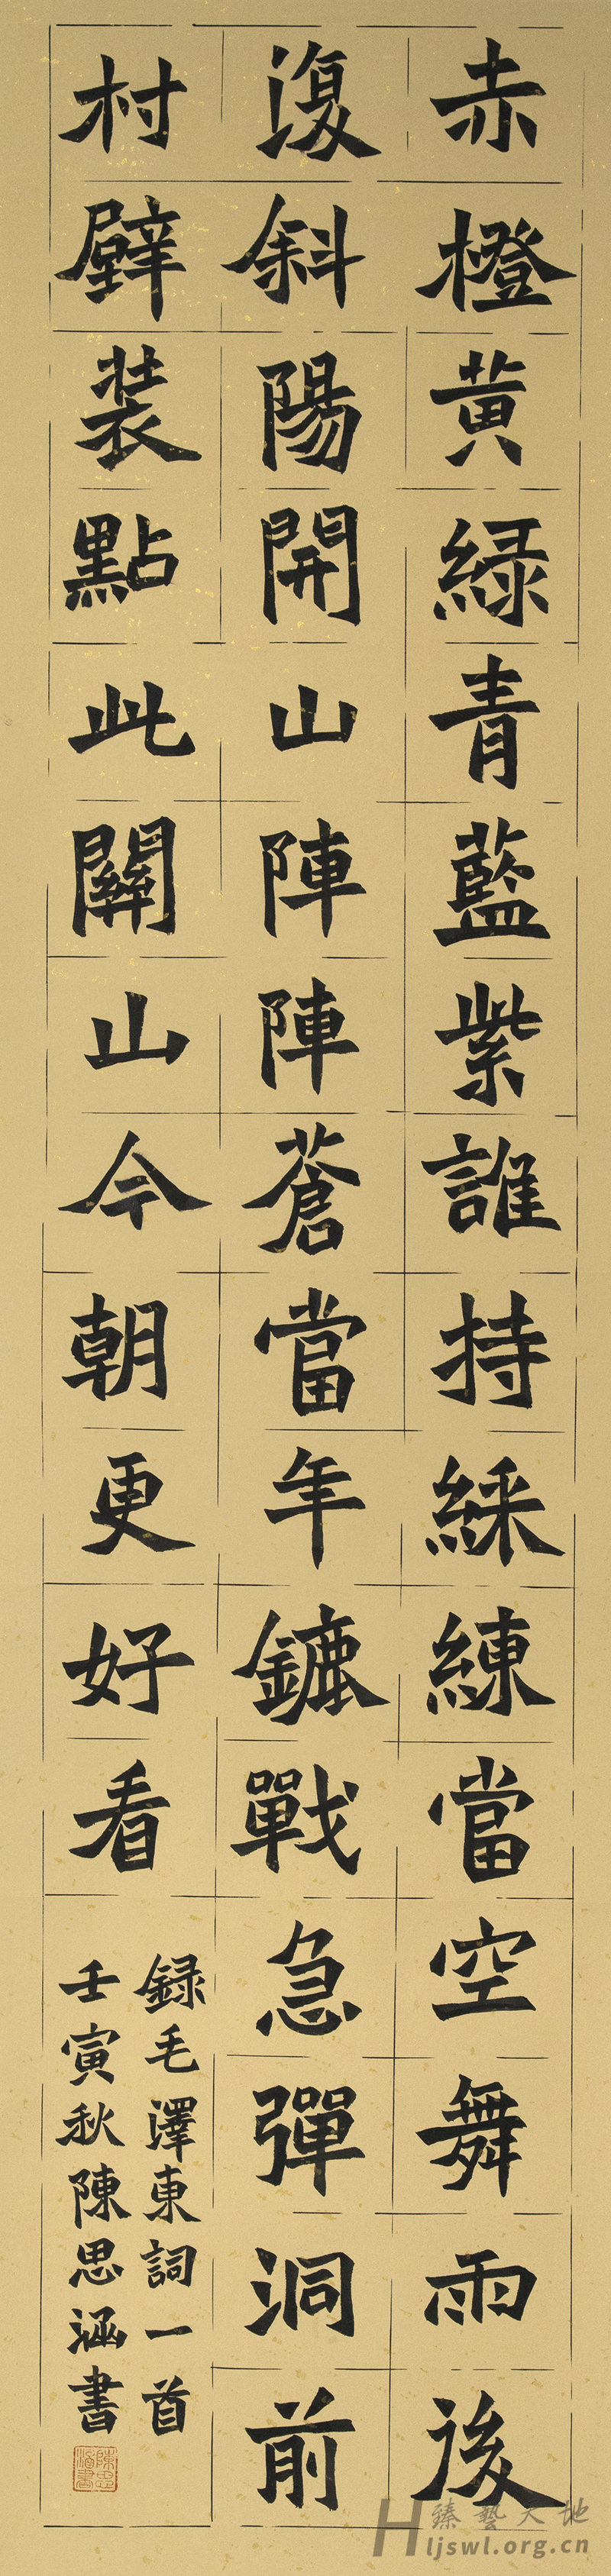 赤橙黄緑青藍紫誰持綵練當空舞雨後
復斜陽開山陣陣蒼當年鏕戰急彈洞前
村壁装點此關山今朝更好看
録毛澤東詞一首
壬寅秋陳思涵書
陳思涵書
臻藝天地
ljswl.org.cn